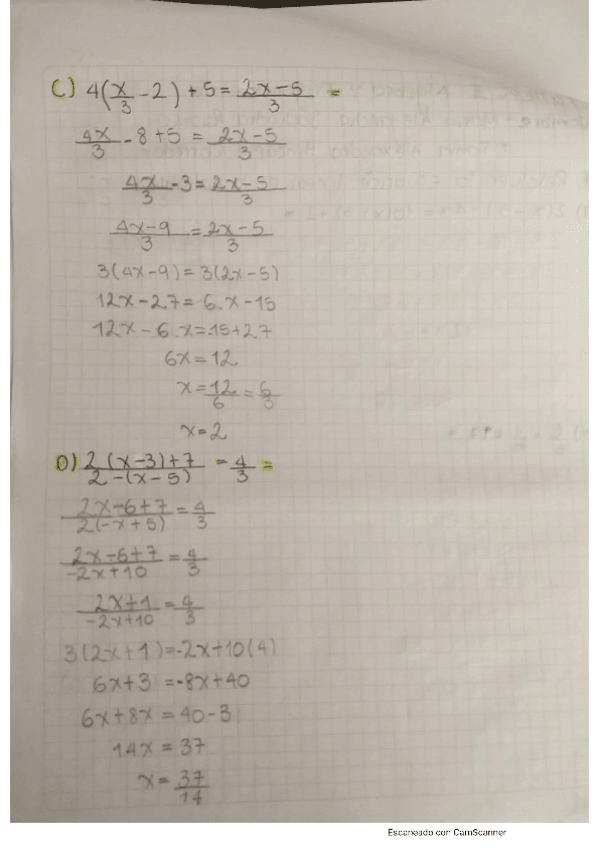 C) 4(x/3 - 2) + 5 = 2x-5/3 =
4x/3 - 8 + 5 = 2x-5/3
4x/3 - 3 = 2x-5/3
4x-9/3 = 2x-5/3
3(4x-9) = 3(2x-5)
12x-27 = 6.x-15
12x-6.x=-15+27
6x=12
x=12/6=6/3
x=2
D) 2(x-3)+7/2-(x-5) = 4/3 =
2x-6+7/2(-x+5) = 4/3
2x-6+7/-2x+10 = 4/3
2x+1/-2x+10 = 4/3
3(2x+1)=-2x+10(4)
6x+3 =-8x+40
6x+8x = 40-3
14x = 37
x= 37/14
Escaneado con CamScanner